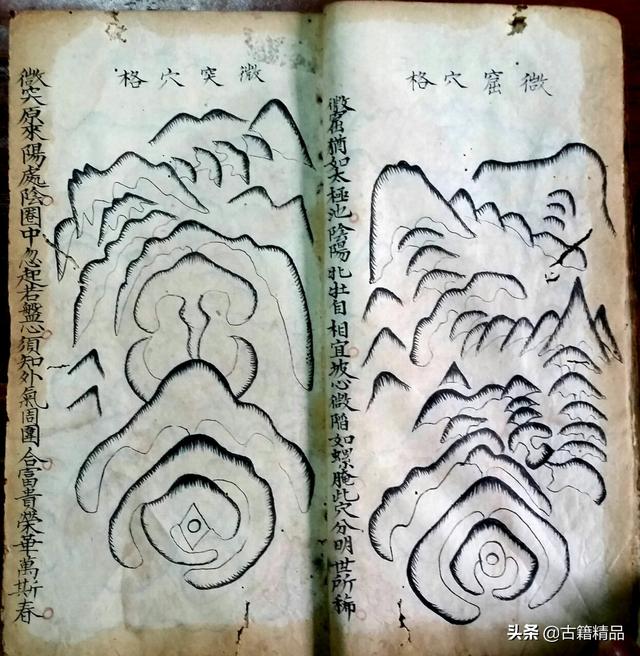 微窟穴格
微窟猶如太極池陰陽牝牡自相宜坡心微陷如螺腌此穴分明世所稀
微突穴格
微突原來陽處陰圈中忽起若盤心須知外氣周圍合富貴榮華萬斯春
头条 @古籍精品